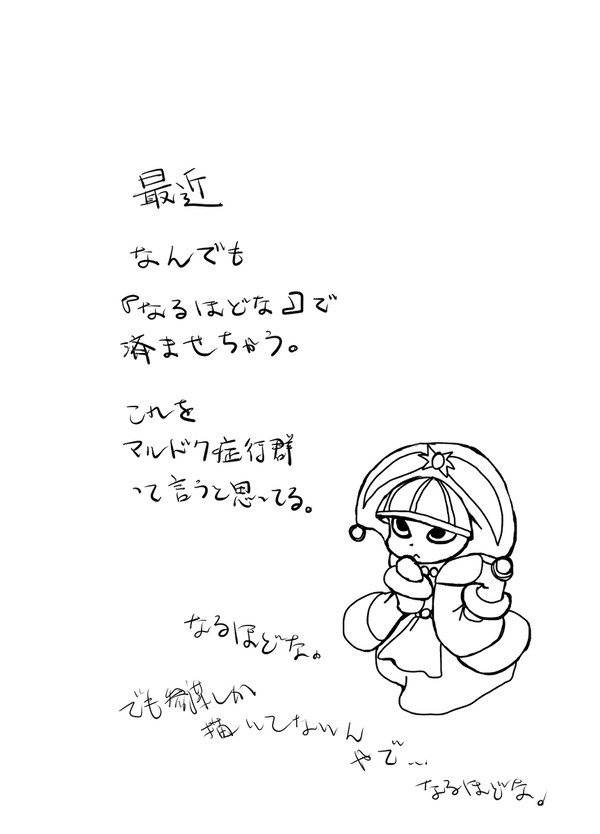 最近
なんでも
『なるほどな』で
済ませちゃう。
これを
マルドク症行群
って言うと思ってる。
なるほどな。
でも
しか
描いてないん
やで…
なるほどな。